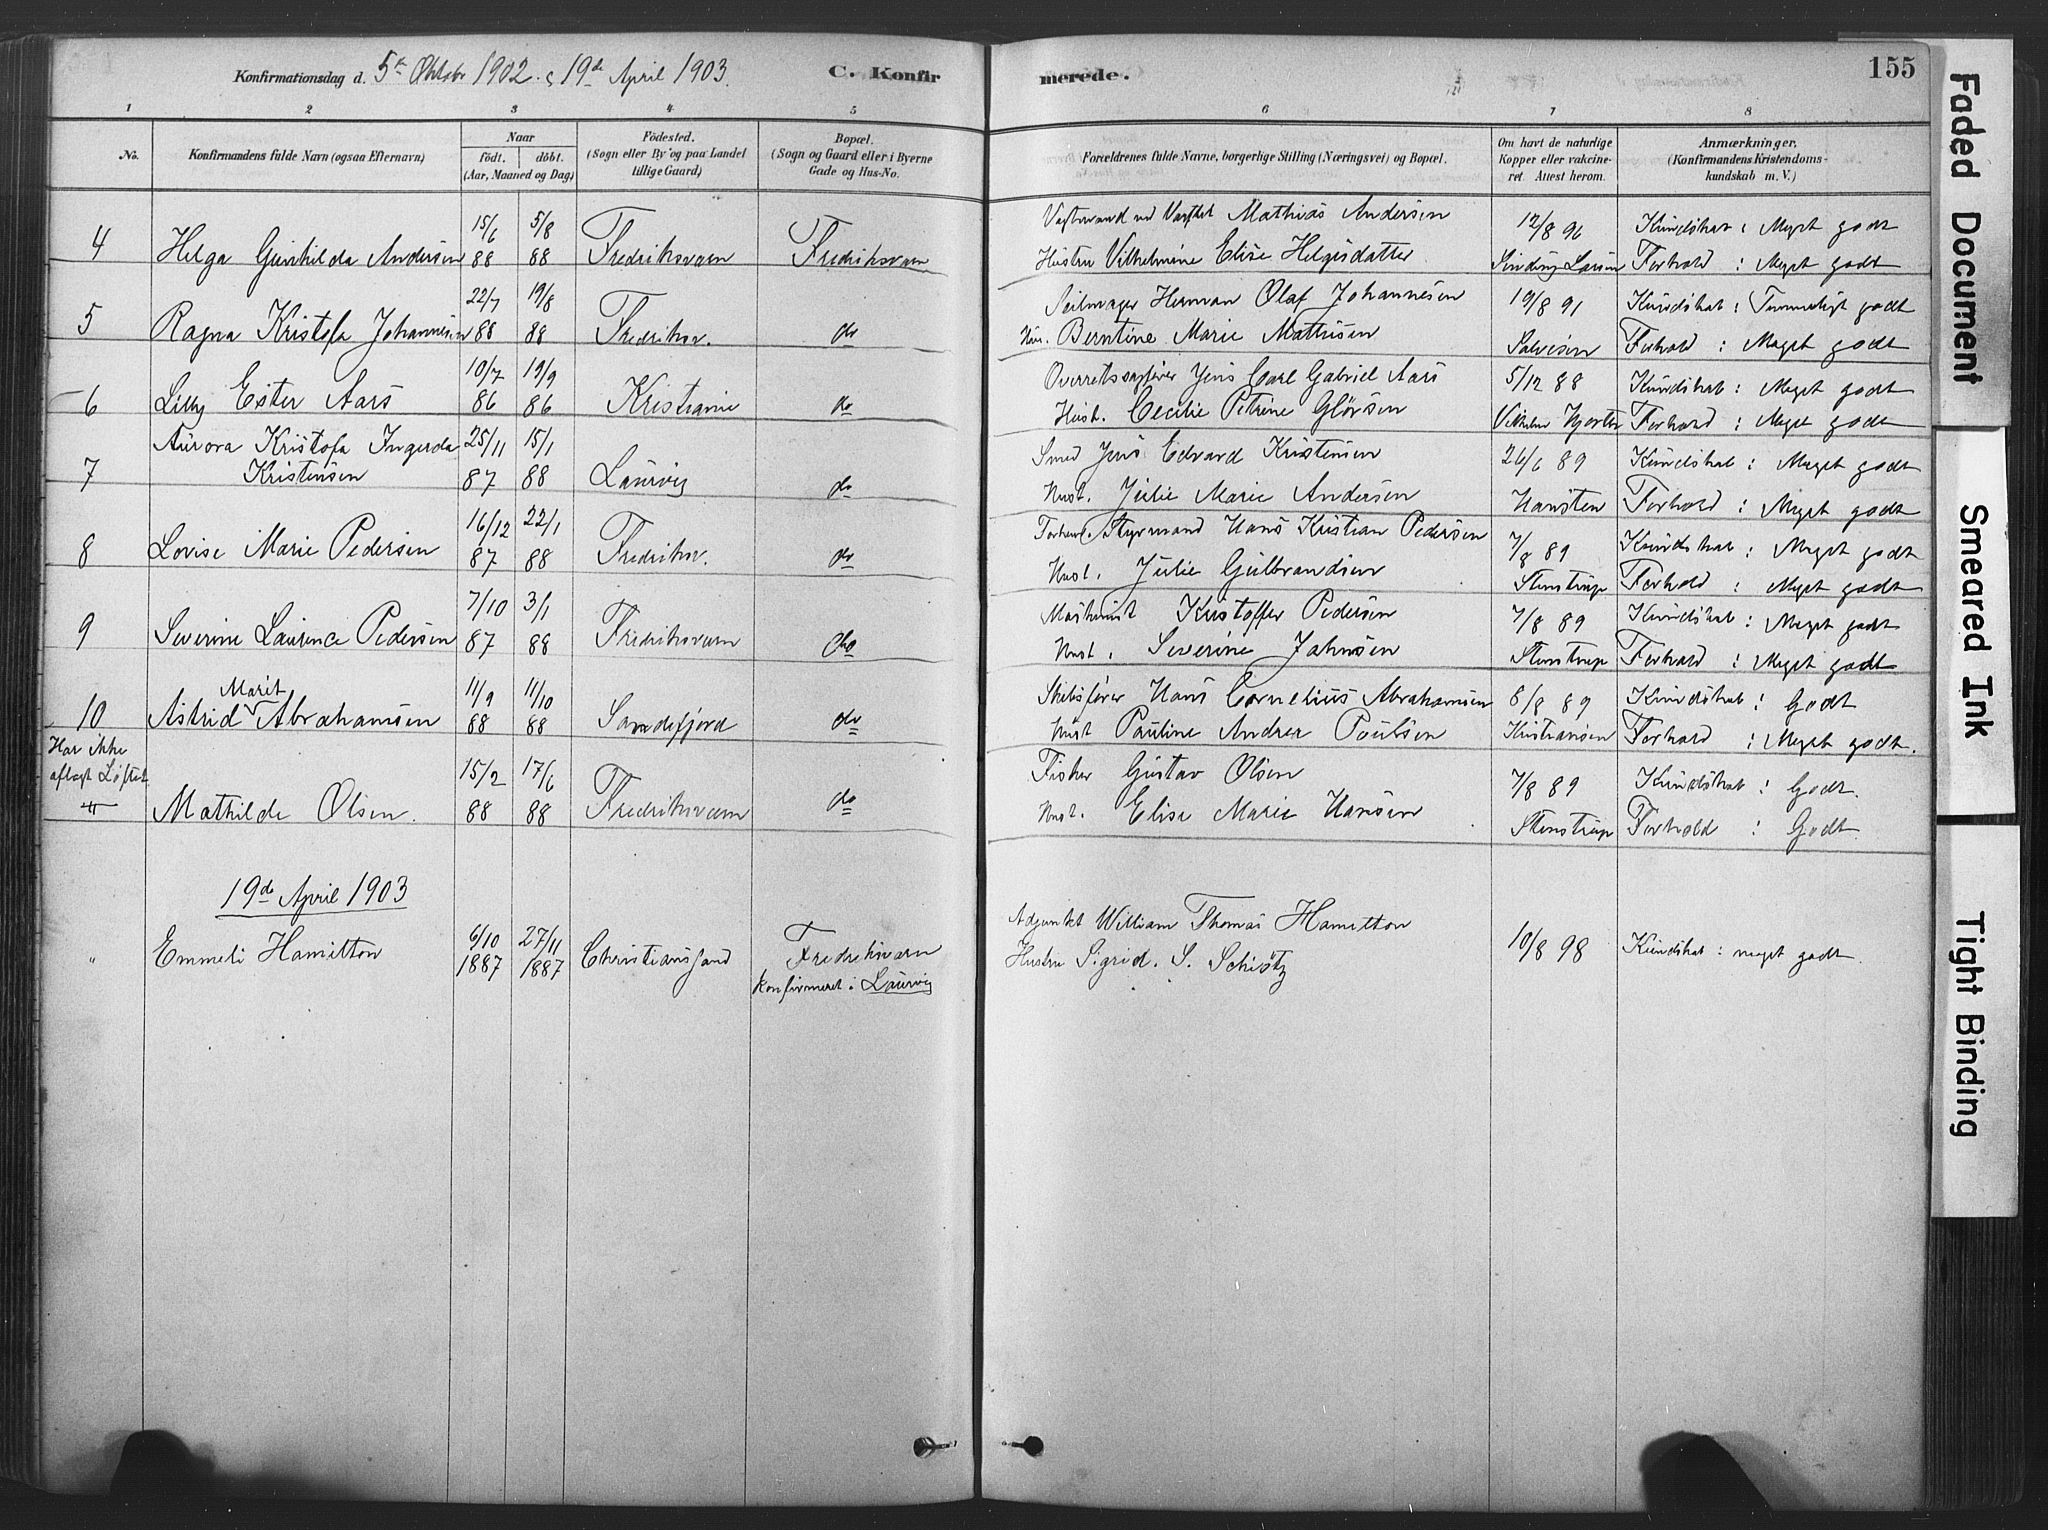 Konfirmationsdag d. 5te Oktober 1902. & 19de April 1903. C. Konfirmerede. 155
1 2 3 4 5 6 7 8
No. Konfirmandens fulde Navn (ogsaa Efternavn) Naar födt. döbt. (Aar, Maaned og Dag) Födested. (Sogn eller By og paa Landet tillige Gaard) Bopæl. (Sogn og Gaard eller i Byerne Gade og Hus-No. Forældrenes fulde Navne, borgerlige Stilling (Næringsvei) og Bopæl. Om havt de naturlige Kopper eller vakcineret. Attest herom. Anmærkninger, (Konfirmandens Kristendomskundskab m. V.)
15/6 5/8 Mathias Andersen 12/8 96 Kundskab : Meget godt
4 Helga Gunhilda Andersen 88 88 Fredriksværn Fredriksværn Hustru Vilhelmine Elise Helgesdatter Sinding Larsen Forhold : Meget godt
22/7 19/8 Seilmager Herman Olaf Johannesen 19/8 91 Kundskab : Temmeligt godt
5 Ragna Kristofa Johannesen 88 88 Fredriksv. do Hus. Berntine Marie Mathisen Salvesen Forhold : Meget godt
10/7 19/9 Overretssagfører Jens Carl Gabriel Aars 5/12 88 Kundskab : Meget godt
6 Lilly Ester Aars 86 86 Kristiania do Hust. Cecilie Petrine Glörsen Vilhelm Hjorth Forhold : Meget godt
Aurora Kristofa Ingerda 25/11 15/1 Smed Jens Edvard Kristensen 26/6 89 Kundskab : Meget godt
7 Kristensen 87 88 Laurvig do Hust. Julie Marie Andersen Hansteen Forhold : Meget godt
16/12 22/1 Styrmand Hans Kristian Pedersen 7/8 89 Kundskab : Meget godt
8 Lovise Marie Pedersen 87 88 Fredriksv. do Hust. Julie Gulbrandsen Stenstrup Forhold : Meget godt
7/10 3/1 Maskinist Kristoffer Pedersen 7/8 89 Kundskab : Meget godt
9 Severine Laurence Pedersen 87 88 Fredriksværn do Hust. Severine Johnsen Stenstrup Forhold : Meget godt
Marit 11/9 11/10 Skibsfører Hans Cornelius Abrahamsen 8/8 89 Kundskab : Godt
10 Astrid Abrahamsen 88 88 Sandefjord do Hust Pauline Andrea Paulsen Kristiansen Forhold : Meget godt.
Har ikke
aflagt Løftet 15/2 17/6 Fisker Gustav Olsen 7/8 89 Kundskab : Godt.
11 Mathilde Olsen. 88 88 Fredriksværn do Hust. Elise Marie Hansen Stenstrup Forhold : Godt.
19de April 1903
6/10 27/11 Fredriksværn Adjunkt William Thomas Hamilton
" Emmeli Hamilton 1887 1887 Christianssand konfirmeret i Laurvig Hustru Sigrid. S. Schiøtz 10/8 98 Kundskab : meget godt.
Faded Document
Smeared Ink
Tight Binding